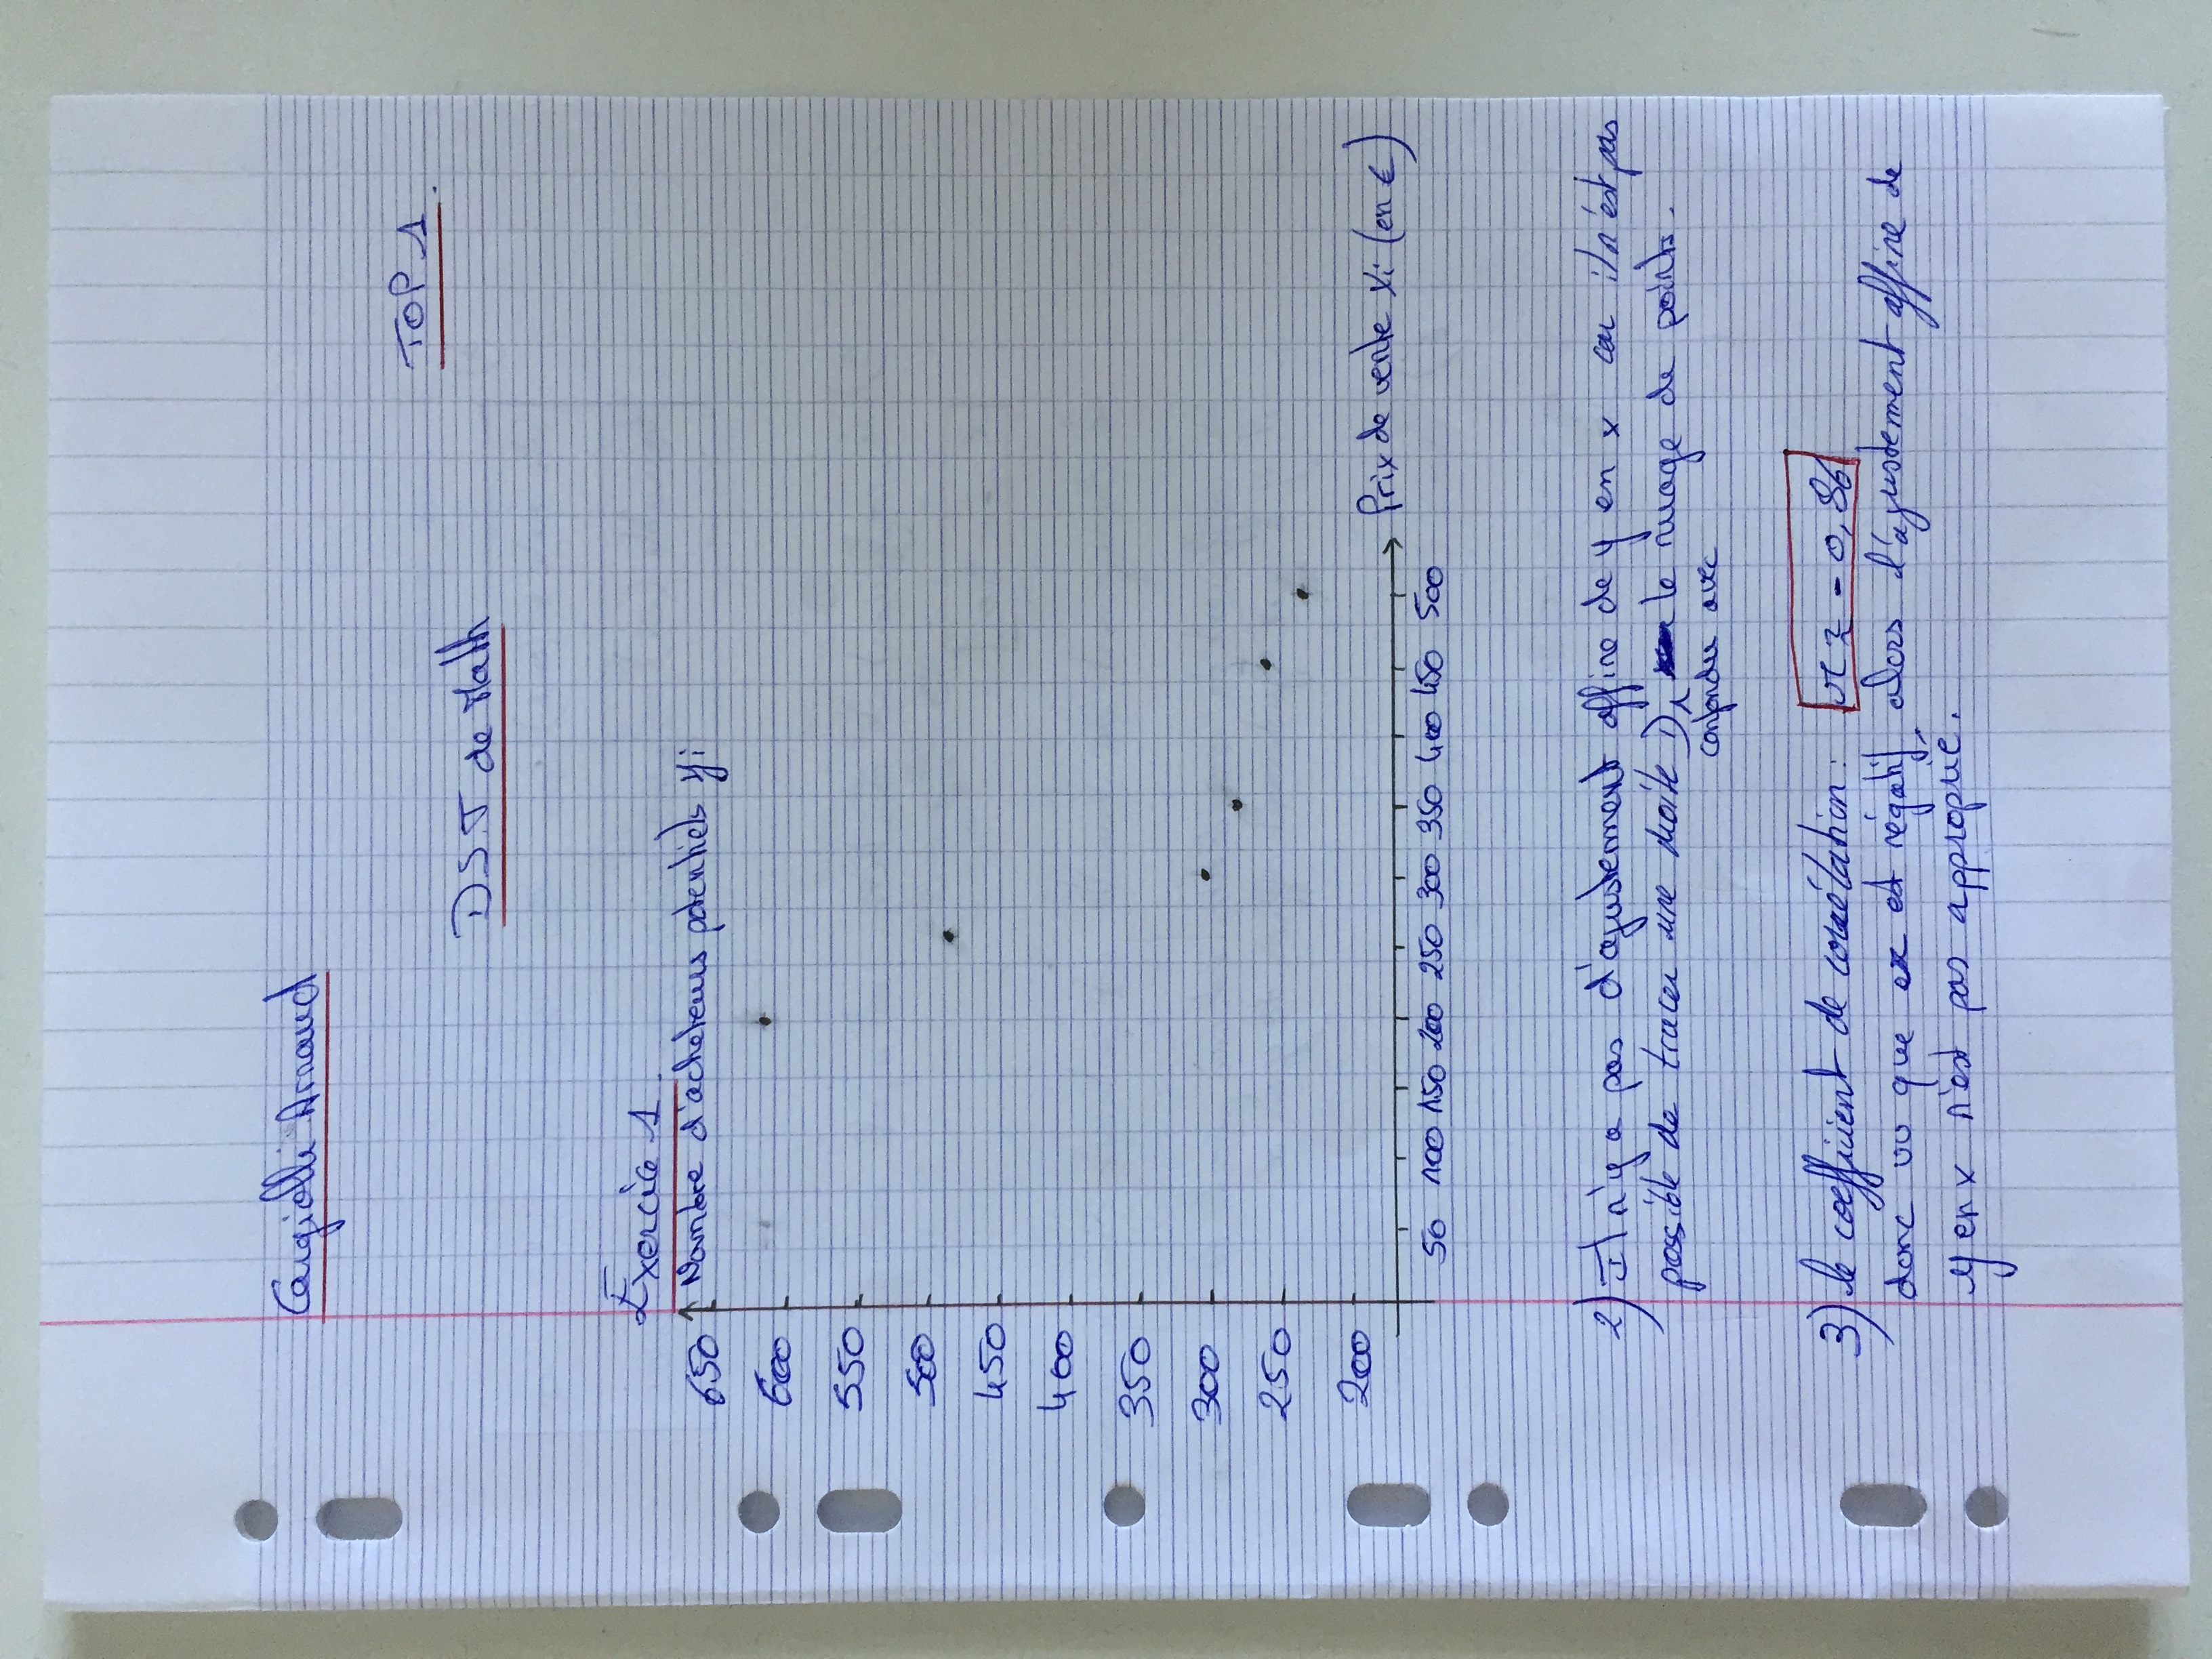 Cargiolli Arnaud
TOP 1.
D.S.T de Math
Exercice 1.
Nombre d'acheteurs potentiels yi
650
600
550
500
450
400
350
300
250
200
Prix de vente xi (en €)
50 100 150 200 250 300 350 400 450 500
2) Il n'y a pas d'ajustement affine de y en x car il n'est pas
possible de tracer une droite D, le nuage de points.
confondu avec
3) le coefficient de corrélation : r ≈ -0,86
donc vu que est négatif alors l'ajustement affine de
y en x n'est pas approprié.